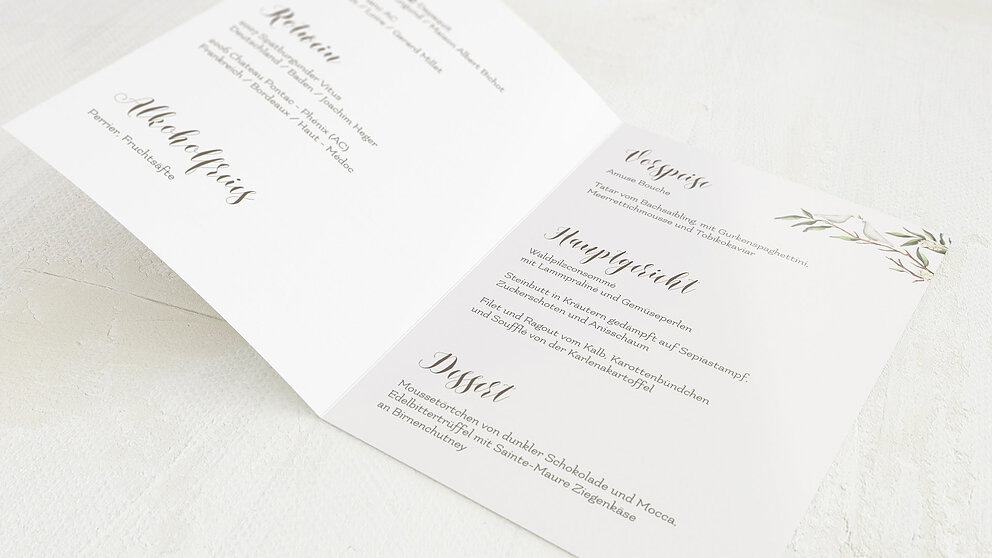 Gérard Millet
Maison Albert Bichot
Rotwein
2007 Spätburgunder Vitus
Deutschland / Baden / Joachim Heger
2006 Chateau Pontac - Phenix (AC)
Frankreich / Bordeaux / Haut - Medoc
Alkoholfreies
Perrier, Fruchtsäfte
Vorspeise
Amuse Bouche
Tatar vom Bachsaibling, mit Gurkenspaghettini,
Meerrettichmousse und Tobikokaviar
Hauptgericht
Waldpilzconsommé
mit Lammpraline und Gemüseperlen
Steinbutt in Kräutern gedämpft auf Sepiastampf,
Zuckerschoten und Anisschaum
Filet und Ragout vom Kalb, Karottenbündchen
und Souffle von der Karlenakartoffel
Dessert
Moussetörtchen von dunkler Schokolade und Mocca,
Edelbittertrüffel mit Sainte-Maure Ziegenkäse
an Birnenchutney